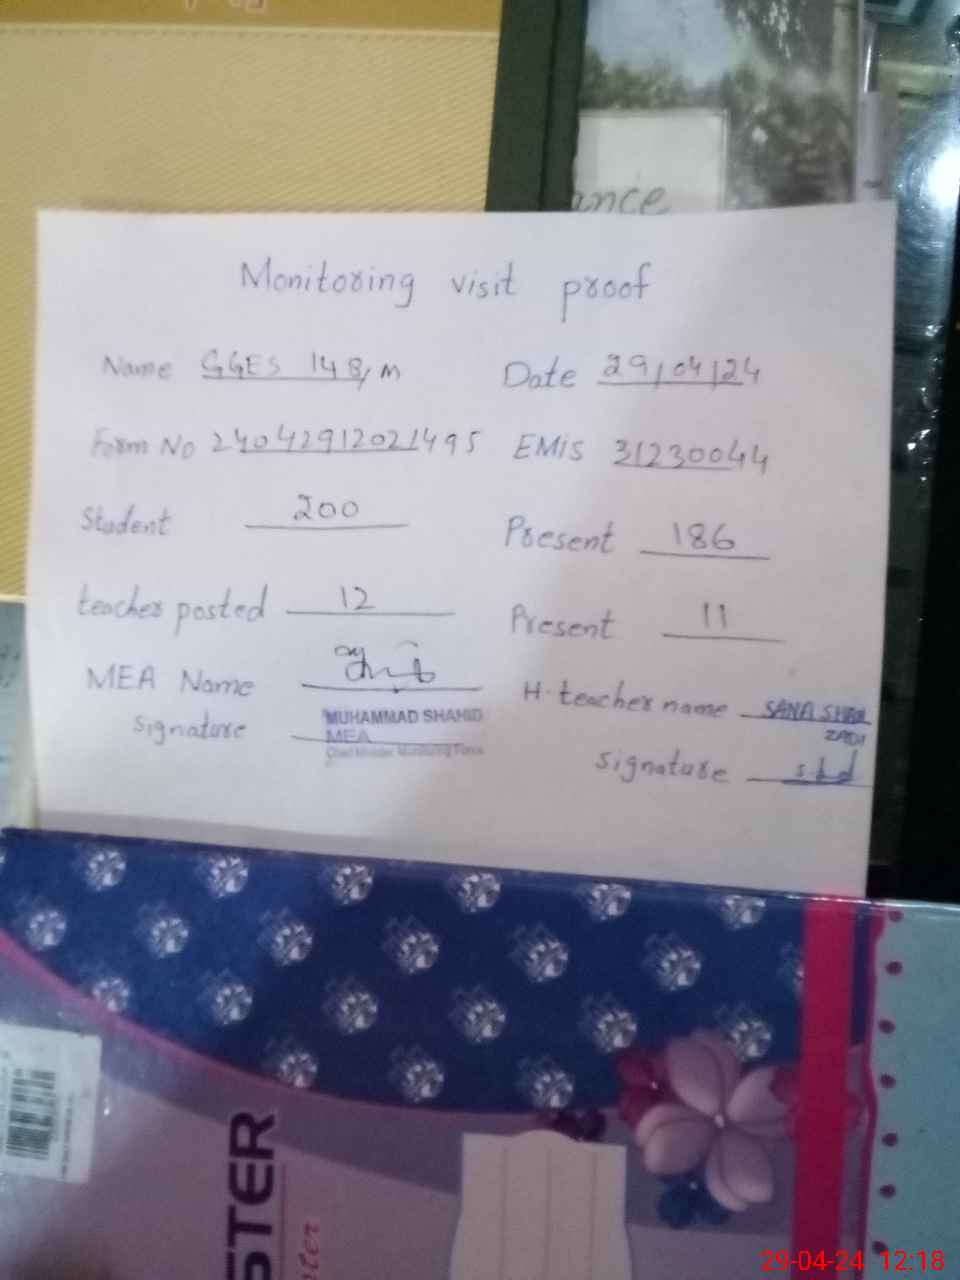 ance
Monitoring visit proof
Name GGES 148/M Date 29/04/24
Form No 24042912021495 EMIS 31230044
Student 200 Present 186
teacher posted 12 Present 11
MEA Name H.teacher name SANA SHAH
ZADI
signature MUHAMMAD SHAHID
MEA
Chief Minister Monitoring Force
signature
STER
29-04-24 12:18